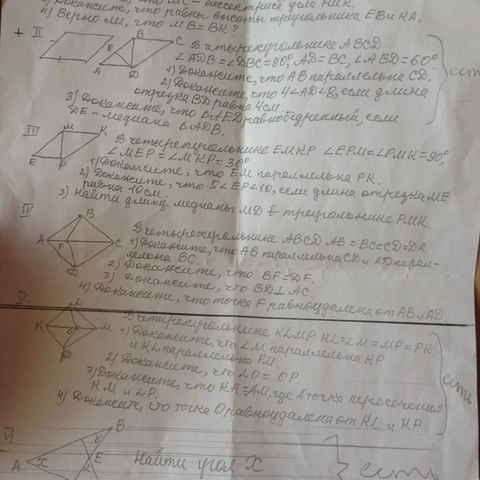 Докажите, что равны высоты треугольника ЕВ и КА.
4) Верно ли, что МВ = ВК?
+ II
В четырехугольнике ABCD
∠ADB = ∠DBC = 90°, AD = BC, ∠ABD = 60°
1) Докажите, что АВ параллельна CD.
2) Докажите, что 4 < AD < 8, если длина
отрезка BD равна 4 см.
3) Докажите, что △AED равнобедренный, если
DE - медиана △ADB.
есть
B C A D
III
M K E P
В четырехугольнике ЕМКР ∠EPM = ∠PMK = 90°,
∠MEP = ∠MKP = 30°
1) Докажите, что ЕМ параллельна РК.
2) Докажите, что 5 < EP < 10, если длина отрезка МЕ
равна 10 см.
3) Найти длину медианы MD в треугольнике РМК.
IV
B A F C D
В четырехугольнике ABCD AB = BC = CD = DA.
1) Докажите, что АВ параллельна CD и AD парал-
лельна ВС.
2) Докажите, что BF = DF.
3) Докажите, что BD ⊥ AC.
4) Докажите, что точка F равноудалена от АВ и AD
V.
K M
В четырехугольнике KLMP KL = LM = MP = PK
1) Докажите, что LM параллельна KP
и KL параллельна PM.
2) Докажите, что LO = OP.
3) Докажите, что KA = AM, где А точка пересечения
KM и LP.
4) Докажите, что точка О равноудалена от KL и KP.
есть
VI
B E A x
Найти угол X
есть